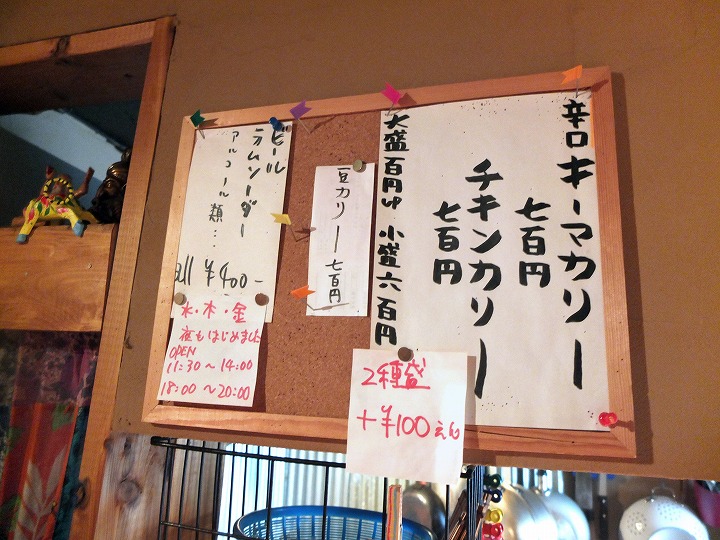 辛口キーマカリー
七百円
チキンカリー
七百円
大盛百円up 小盛六百円
豆カリー 七百円
ビール
ラムソーダー
アルコール類…
all ¥400-
水・木・金
夜もはじめました
OPEN
11:30〜14:00
18:00〜20:00
2種盛
+¥100えん